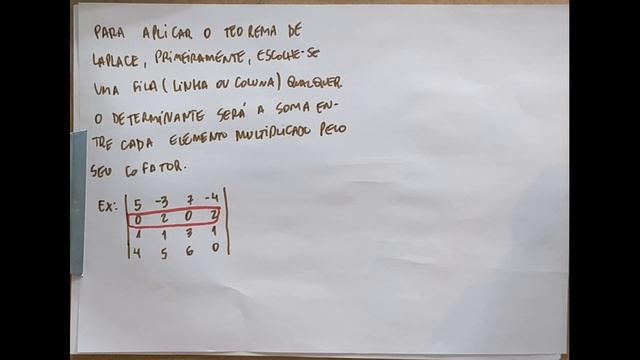 PARA APLICAR O TEOREMA DE
LAPLACE, PRIMEIRAMENTE, ESCOLHE-SE
UMA FILA (LINHA OU COLUNA) QUALQUER.
O DETERMINANTE SERÁ A SOMA EN-
TRE CADA ELEMENTO MULTIPLICADO PELO
SEU COFATOR.
EX: | 5 -3 7 -4 |
| 0 2 0 2 |
| 1 1 3 1 |
| 4 5 6 0 |